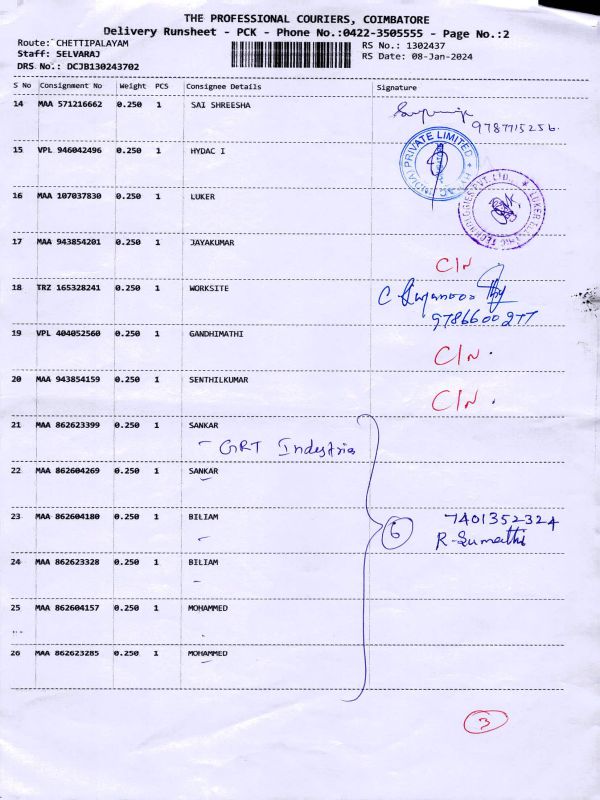 THE PROFESSIONAL COURIERS, COIMBATORE
Delivery Runsheet - PCK - Phone No.:0422-3505555 - Page No.:2
Route: CHETTIPALAYAM
Staff: SELVARAJ
DRS No.: DCJB130243702
RS No.: 1302437
RS Date: 08-Jan-2024
S No Consignment No Weight PCS Consignee Details Signature
14 MAA 571216662 0.250 1 SAI SHREESHA
9787715256.
15 VPL 946042496 0.250 1 HYDAC I
PRIVATE LIMITED
16 MAA 107037830 0.250 1 LUKER
LUKER ELECTRIC TECHNOLOGIES PVT. LTD.
17 MAA 943854201 0.250 1 JAYAKUMAR
C/N
18 TRZ 165328241 0.250 1 WORKSITE
9786600277
19 VPL 404052560 0.250 1 GANDHIMATHI
C/N.
20 MAA 943854159 0.250 1 SENTHILKUMAR
C/N.
21 MAA 862623399 0.250 1 SANKAR
- GRT Industries
22 MAA 862604269 0.250 1 SANKAR
23 MAA 862604180 0.250 1 BILIAM
6 7401352324
R-Sumathi
24 MAA 862623328 0.250 1 BILIAM
25 MAA 862604157 0.250 1 MOHAMMED
26 MAA 862623285 0.250 1 MOHAMMED
3